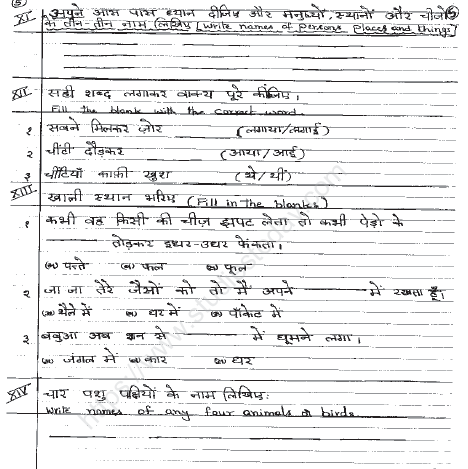 5
XI. अपने आस पास ध्यान दीजिए और मनुष्यों, स्थानों और चीजों
के तीन-तीन नाम लिखिए [write names of persons places and things] 5
XII. सही शब्द लगाकर वाक्य पूरे कीजिए।
Fill the blank with the correct word.
१ सबने मिलकर ज़ोर (लगाया/लगाई)
२ चींटी दौड़कर (आया/आई)
३ चींटियाँ काफ़ी खुश (थे/थीं)
XIII. खाली स्थान भरिए (Fill in the blanks)
१ कभी वह किसी की चीज़ झपट लेता तो कभी पेड़ो के
तोड़कर इधर-उधर फेंकता।
पत्ते फल फूल
२ जा जा तेरे जैसों को तो मैं अपने में रखता हूँ।
थैले में घर में पॉकेट में
३ बबुआ अब शान से में घूमने लगा।
जंगल में कार घर
XIV चार पशु पक्षियों के नाम लिखिए
Write names of any four animals or birds
https://www.studiestoday.com